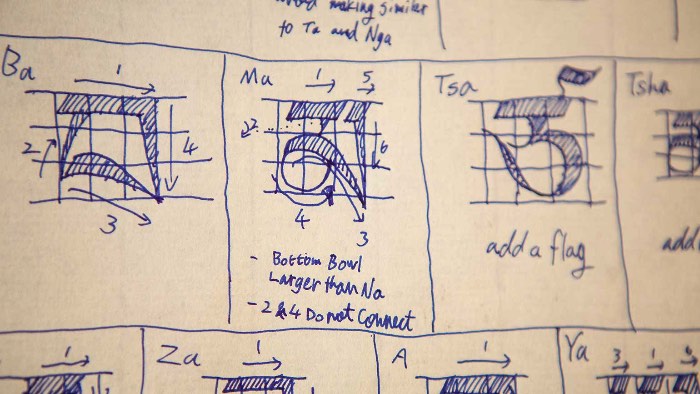 making similar
to Ta and Nga
Ba
1
2
3
4
Ma
1
5
2
6
4
3
- Bottom Bowl
Larger than Na
- 2 & 4 Do not Connect
Tsa
add a flag
Tsha
add
1
Za
1
A
1
Ya
3 1